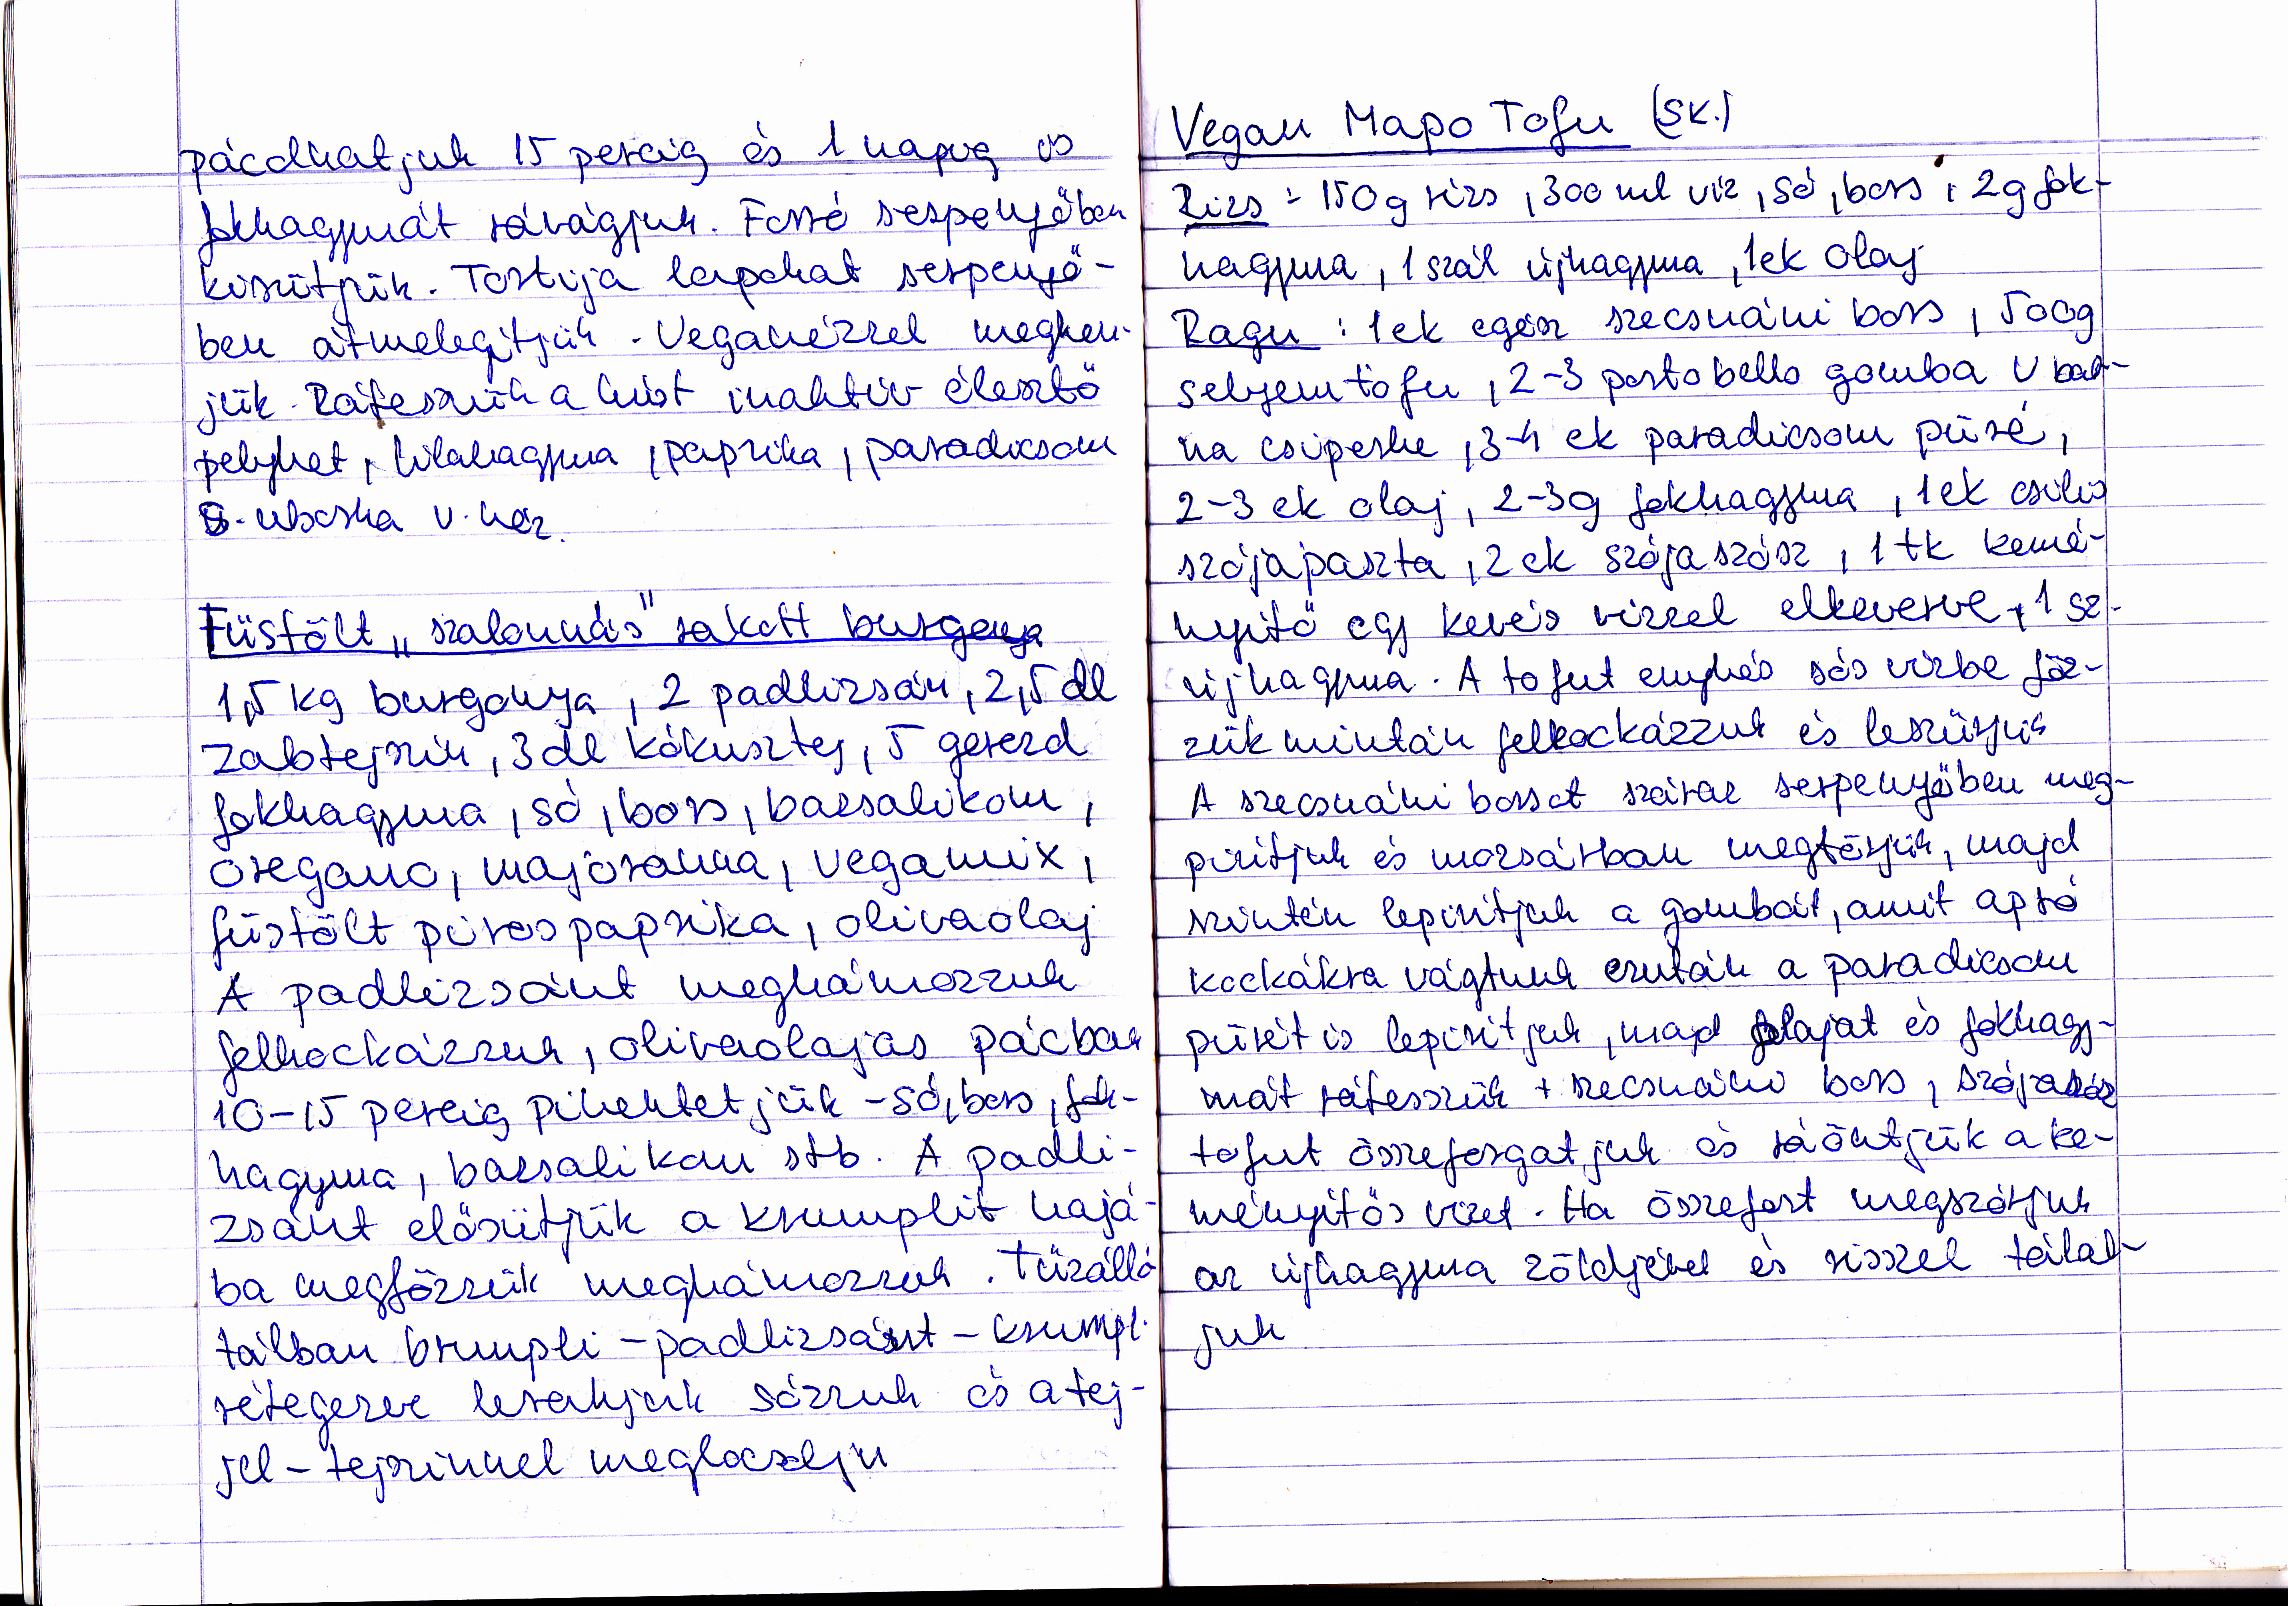 pácolhatjuk 15 percig és 1 napig is
fokhagymát rávágjuk. Forró serpenyőben
kisütjük. Tortija lapokat serpenyő-
ben átmelegítjük. Veganézzel megken-
jük. Ráteszük a húst inaktív élesztő
pelyhet, lilahagyma, paprika, paradicsom
s. uborka v. kéz.
Füstölt „szalonnás" rakott burgonya
1,5 kg burgonya, 2 padlizsán, 2,5 dl
zabtejszín, 3 dl kókusztej, 5 gerezd
fokhagyma, só, bors, bazsalikom,
oregano, majoranna, vegamix,
füstölt piros paprika, olivaolaj
A padlizsánt meghámozzuk
felkockázzuk, olivaolajas pácban
10-15 percig pihentetjük - só, bors, fok-
hagyma, bazsalikom stb. A padli-
zsánt elősütjük a krumplit hajá-
ba megfőzzük meghámozzuk. Tűzálló
tálban krumpli - padlizsánt - krumpl.
rétegezve lerakjuk sózzuk és a tej-
jel - tejszínnel meglocsolju
Vegan Mapo Tofu (SK.)
Rizs: 150g rizs, 300 ml víz, só, bors, 2g fok-
hagyma, 1 szál újhagyma, 1ek olaj
Ragu: 1ek egész szecsuáni bors, 500g
selyemtofu, 2-3 portobello gomba v bar-
na csiperke, 3-4 ek paradicsom püré,
2-3 ek olaj, 2-3g fokhagyma, 1ek csilis
szójapaszta, 2 ek szójaszósz, 1 tk kemé-
nyítő egy kevés vízzel elkeverve, 1 sz.
újhagyma. A tofut enyhés sós vízbe főz-
zük miután felkockázzuk és leszűrjük
A szecsuáni borsot száraz serpenyőben meg-
pirítjuk és mozsárban megtörjük, majd
szintén lepirítjuk a gombát, amit apró
kockákra vágtunk ezután a paradicsom
pürét is lepirítjuk, majd olajat és fokhagy-
mát ráteszük + szecsuáni bors, szójaszósz
tofut összeforgatjuk és ráöntjük a ke-
ményítős vizet. Ha összefort megszórjuk
az újhagyma zöldjével és rizzsel tálal-
juk